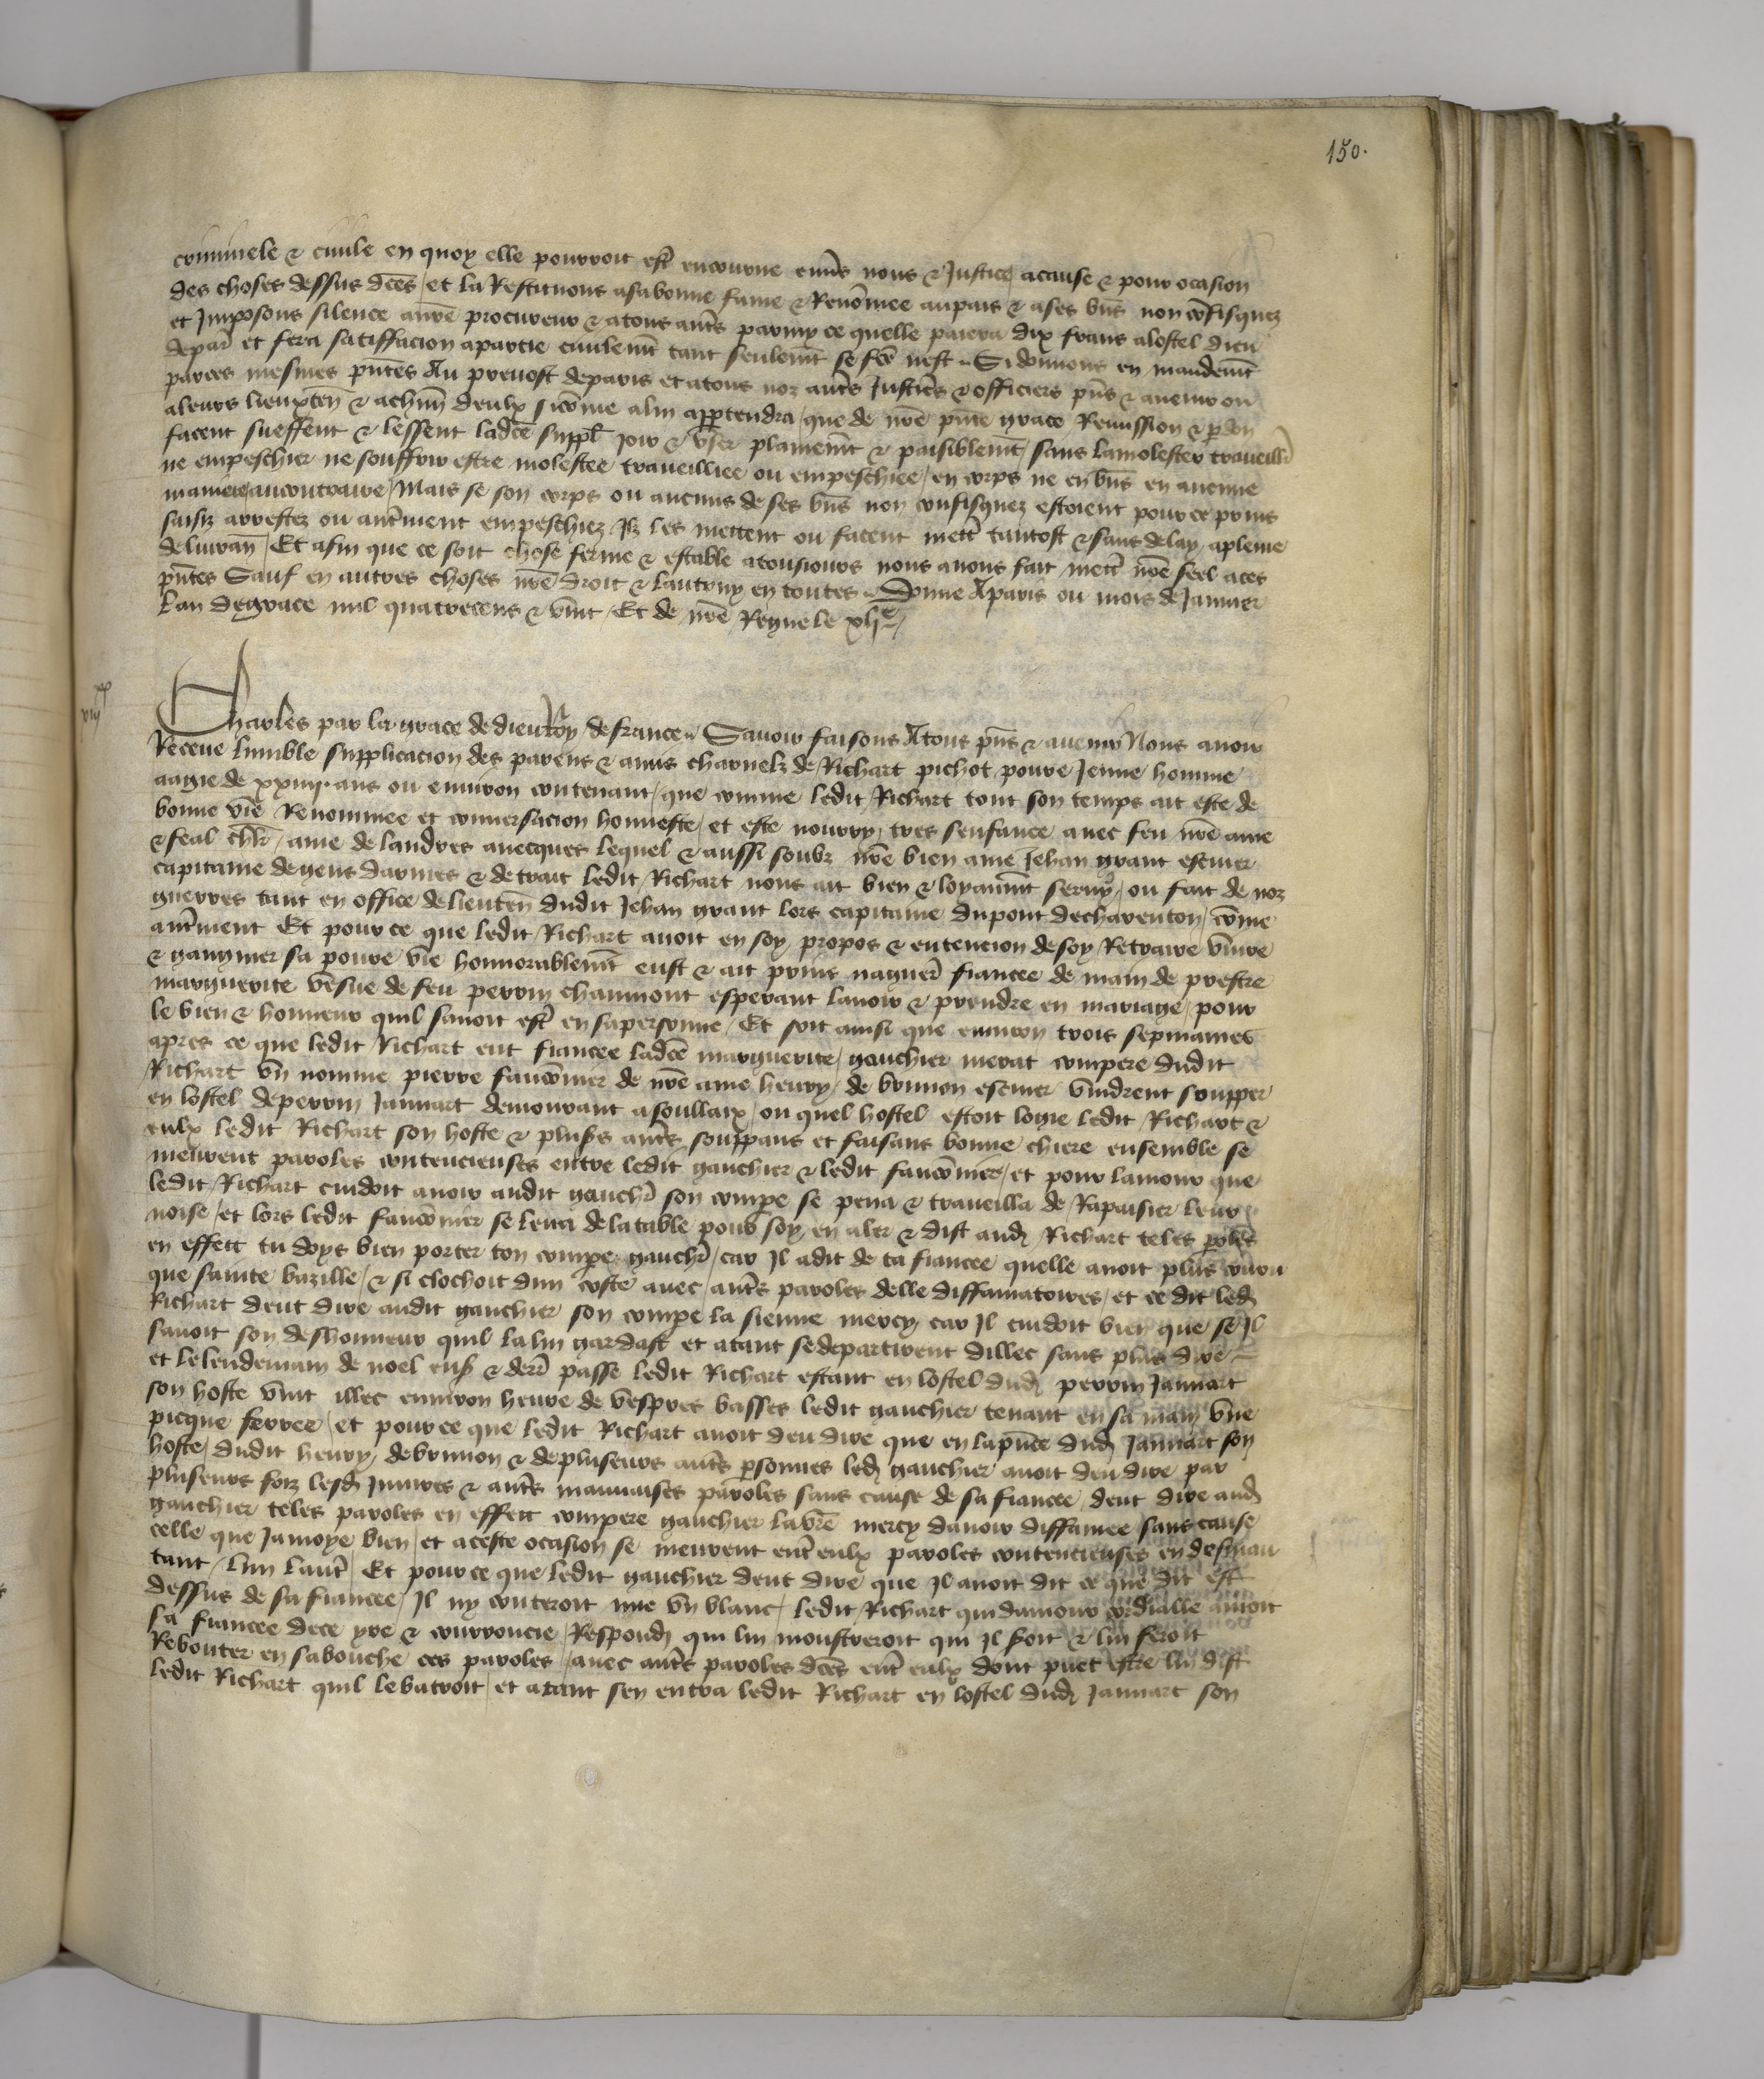 150.
criminele & civile en quoy elle pourroit estr̄ encourue envs̄ nous & Justice, acause & pour ocasion
des choses dessus dc̄es / et la Restituons asabonne fame & Renōmee aupais & ases bn̄s non cōfisquez
et Imposons silence anr̄e procureur & atous autr̄s parmy ce quelle paiera dix frans alostel dieu
depar̄ et fera satiffacion apartie civilemn̄t tant seulemn̄t se fc̄e nest .. Si donnons en mandemn̄t
parces mesmes pn̄tes Au prevost deparis et atous noz autr̄s Justic̄s & officiers pn̄s & avenir ou
aleurs lieuxten̄ & achun̄ deulx sicōme alui appartendra / que de nr̄e pn̄te grace Remission & pdon
facent sueffrent & lessent ladc̄e suppl̄ joir & user plainemn̄t & paisiblemn̄t / sans lamolester traveill̄r
ne empeschier ne souffrir estre molestee traveilliee ou empeschiee / en corps ne en bn̄s en aucune
maniere aucontraire / Mais se son corps ou aucuns deses bn̄s non confisquez estoient pource prins
saisiz arrestez ou autr̄ment empeschiez Ilz les mettent ou facent mettr̄ tantost & sans delay apleine
delivran̄ / Et afin que ce soit chose ferme & estable atousiours nous avons fait mettr̄ nr̄e seel aces
pn̄tes Sauf en autres choses nr̄e droit & lautruy en toutes .. Donne Aparis ou mois de Janvier
lan degrace mil quatrecens & vint / Et de nr̄e Regne le xli^e /
Charles par la grace dedieu Roy de france .. Savoir faisons Atous pn̄s & avenir Nous avoir
Receue lumble supplicacion des parens & amis charnelz de Richart pichot, povre Jeune homme
aagie de xxiiij. ans ou environ contenant / que comme ledit Richart tout son temps ait este de
bonne vie Renommee et conversacion honneste / et este nourry, tres senfance avec feu nr̄e ame
& feal chl̄r / ame de landres avecques lequel & aussi soubz nr̄e bien ame Jehan grant escuier
capitaine degens darmes & detrait ledit Richart nous ait bien & loyaumn̄t servy / ou fait de noz
guerres tant en office de lieuten̄ dudit Jehan grant lors capitaine dupont decharenton / cōme
autr̄ment Et pource que ledit Richart avoit en soy propos & entencion desoy Retraire vivre
& gangnier sa povre vie honnorablemn̄t eust & ait prins naguer̄ fiancee de main de prestre
marguerite vesve de feu perrin chaumont esperant lavoir & prendre en mariage / pour
le bien & honneur quil savoit estr̄ en sapersonne / Et soit ainsi que environ trois sepmaines
apres ce que ledit Richart eut fiancee ladc̄e marguerite / gauchier merat compere dudit
Richart un nomme pierre faucōnnier de nr̄e ame henry de brunon escuier vindrent soupper
en lostel deperrin Januart demourant asoullaix / ou quel hostel estoit logie ledit Richart &
eulx ledit Richart son hoste & plus̄s autr̄s souppans et faisans bonne chiere ensemble se
meurent paroles contencieuses entre ledit gauchier & ledit faucōnnier / et pour lamour que
ledit Richart cuidoit avoir audit gauchr̄ son compe se pena & traveilla de Rapaisier leur
noise / et lors ledit faucōnnier se leva delatable pour soy en aler & dist aud Richart teles pol̄es
en effect tu doys bien porter ton compe gauchr̄ / car Il adit de ta fiancee quelle avoit plus couru
que sainte bazille / & si clochoit dun coste avec autr̄s paroles delle diffamatoires / et ce dit led
Richart deut dire audit gauchier son compe la sienne mercy car Il cuidoit bien que se Il
savoit son deshonneur quil lalui gardast et atant sedepartirent dillec sans plus dire
et lelendemain de noel eus̄ & derr̄ passe ledit Richart estant en lostel dud perrin Januart
son hoste vint illec environ heure de vespres basses ledit gauchier tenant en sa main une
picque ferree / et pource que ledit Richart avoit deu dire que en lapn̄ce dud Januart son
hoste / dudit henry debrunon & de pluseurs autr̄s psonnes led gauchier avoit deu dire par
pluseurs foiz lesd Injures & autr̄s mauvaises paroles sans cause de sa fiancee / deut dire aud
gauchier teles paroles en effect compere gauchier lavr̄e mercy davoir diffamee sans cause
celle que Jamoye bien / et aceste ocasion se meurent entr̄ eulx paroles contencieuses en desmen
tant / lun lautr̄ / Et pource que ledit gauchier deut dire que Il avoit dit ce que dit est
dessus de sa fiancee / Il ny conteroit mie un blanc / ledit Richart qui damour cordialle amoit
sa fiancee dece yre & courroucie / Respond qui lui monstreroit qui Il soit & lui feroit
Rebouter en sabouche ces paroles / avec autr̄s paroles dc̄es entr̄ eulx dont puet estre lui dist
ledit Richart quil lebatroit / et atant sen entra ledit Richart en lostel dud Januart son